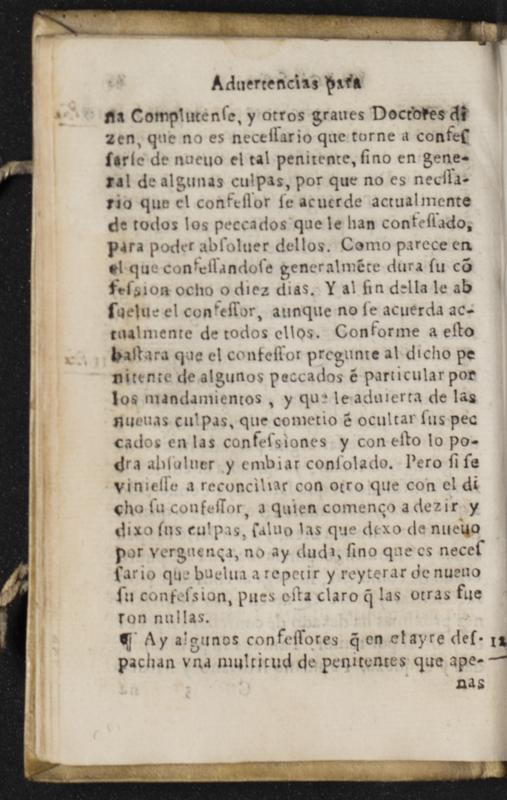 Aduertencias para
na Complutense, y otros graues Doctores di
zen, que no es necessario que torne a confes
sarse de nueuo el tal penitente, sino en gene-
ral de algunas culpas, por que no es necssa-
rio que el confessor se acuerde actualmente
de todos los peccados que le han confessado,
para poder absoluer dellos. Como parece en
el que confessandose generalmẽte dura su cõ
fession ocho o diez dias. Y al fin della le ab
suelue el confessor, aunque no se acuerda ac-
tualmente de todos ellos. Conforme a esto
bastara que el confessor pregunte al dicho pe
nitente de algunos peccados ẽ particular por
los mandamientos, y que le aduierta de las
nueuas culpas, que cometio ẽ ocultar sus pec
cados en las confessiones y con esto lo po-
dra absoluer y embiar consolado. Pero si se
viniesse a reconciliar con otro que con el di
cho su confessor, a quien començo a dezir y
dixo sus culpas, saluo las que dexo de nueuo
por verguença, no ay duda, sino que es neces
sario que buelua a repetir y reyterar de nueuo
su confession, pues esta claro q̃ las otras fue
ron nullas.
¶ Ay algunos confessores q̃ en el ayre des- 12
pachan vna multitud de penitentes que ape-
nas